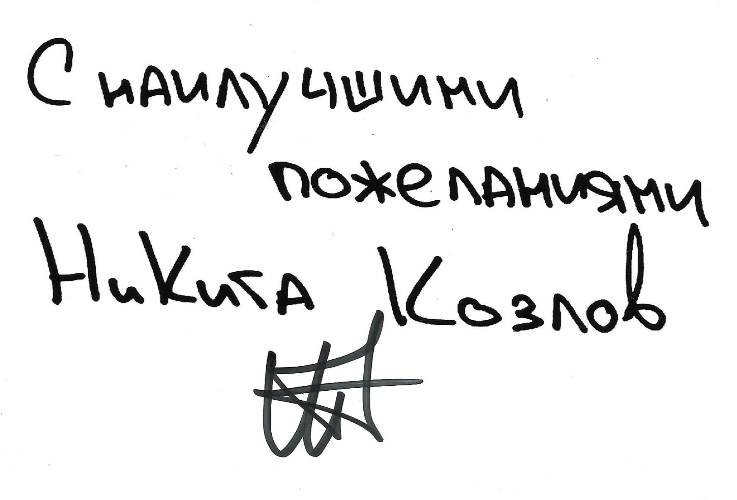 С наилучшими
пожеланиями
Никита Козлов